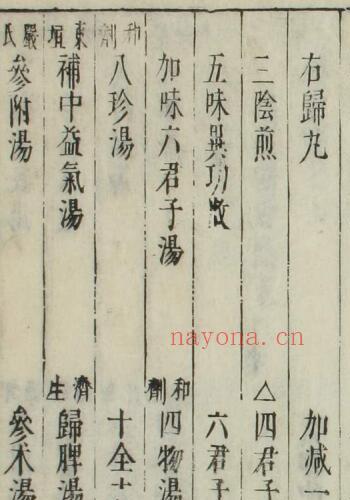 右歸丸
加減一
三陰煎
△四君子
五味異功散
六君子
加味六君子湯
和劑四物湯
和劑八珍湯
十全大
東垣補中益氣湯
濟生歸脾湯
嚴氏參附湯
參朮湯
nayona.cn